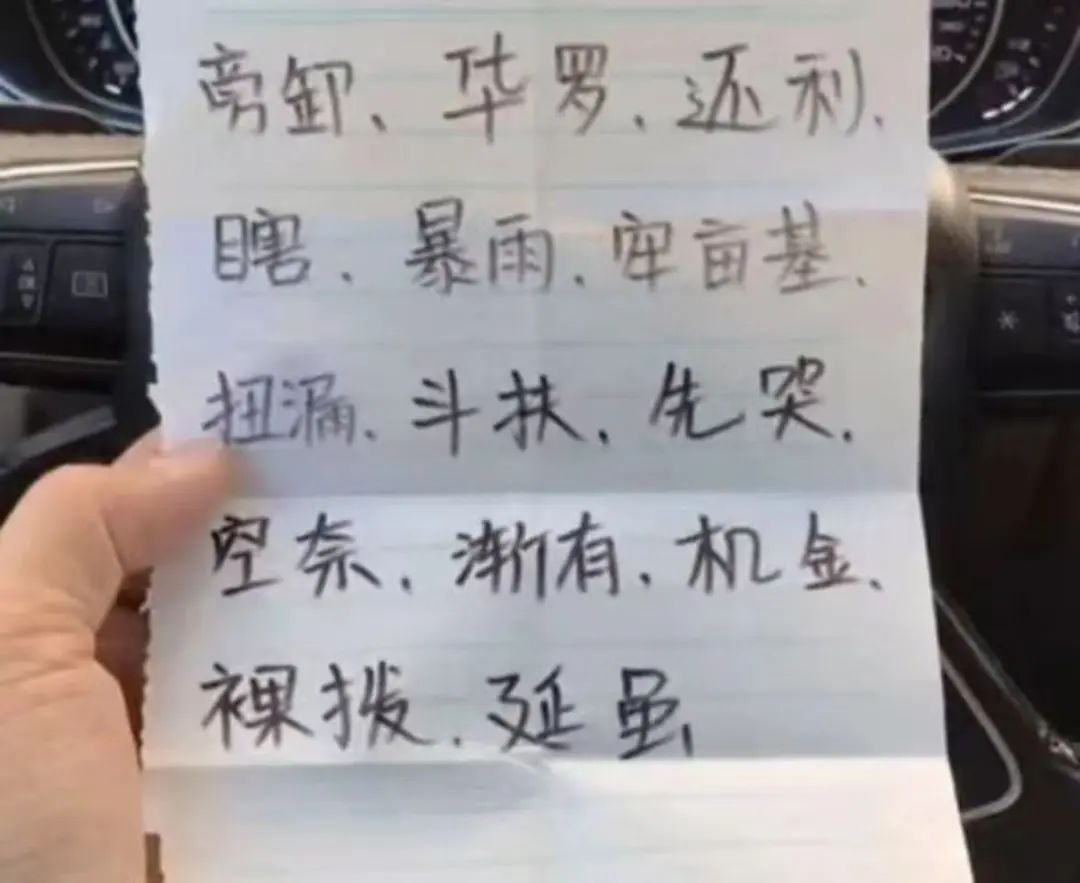 旁卸、华罗、还利、
瞎、暴雨、牢亩基、
扭漏、斗扶、先哭、
空奈、渐有、机金、
裸拨、延虽